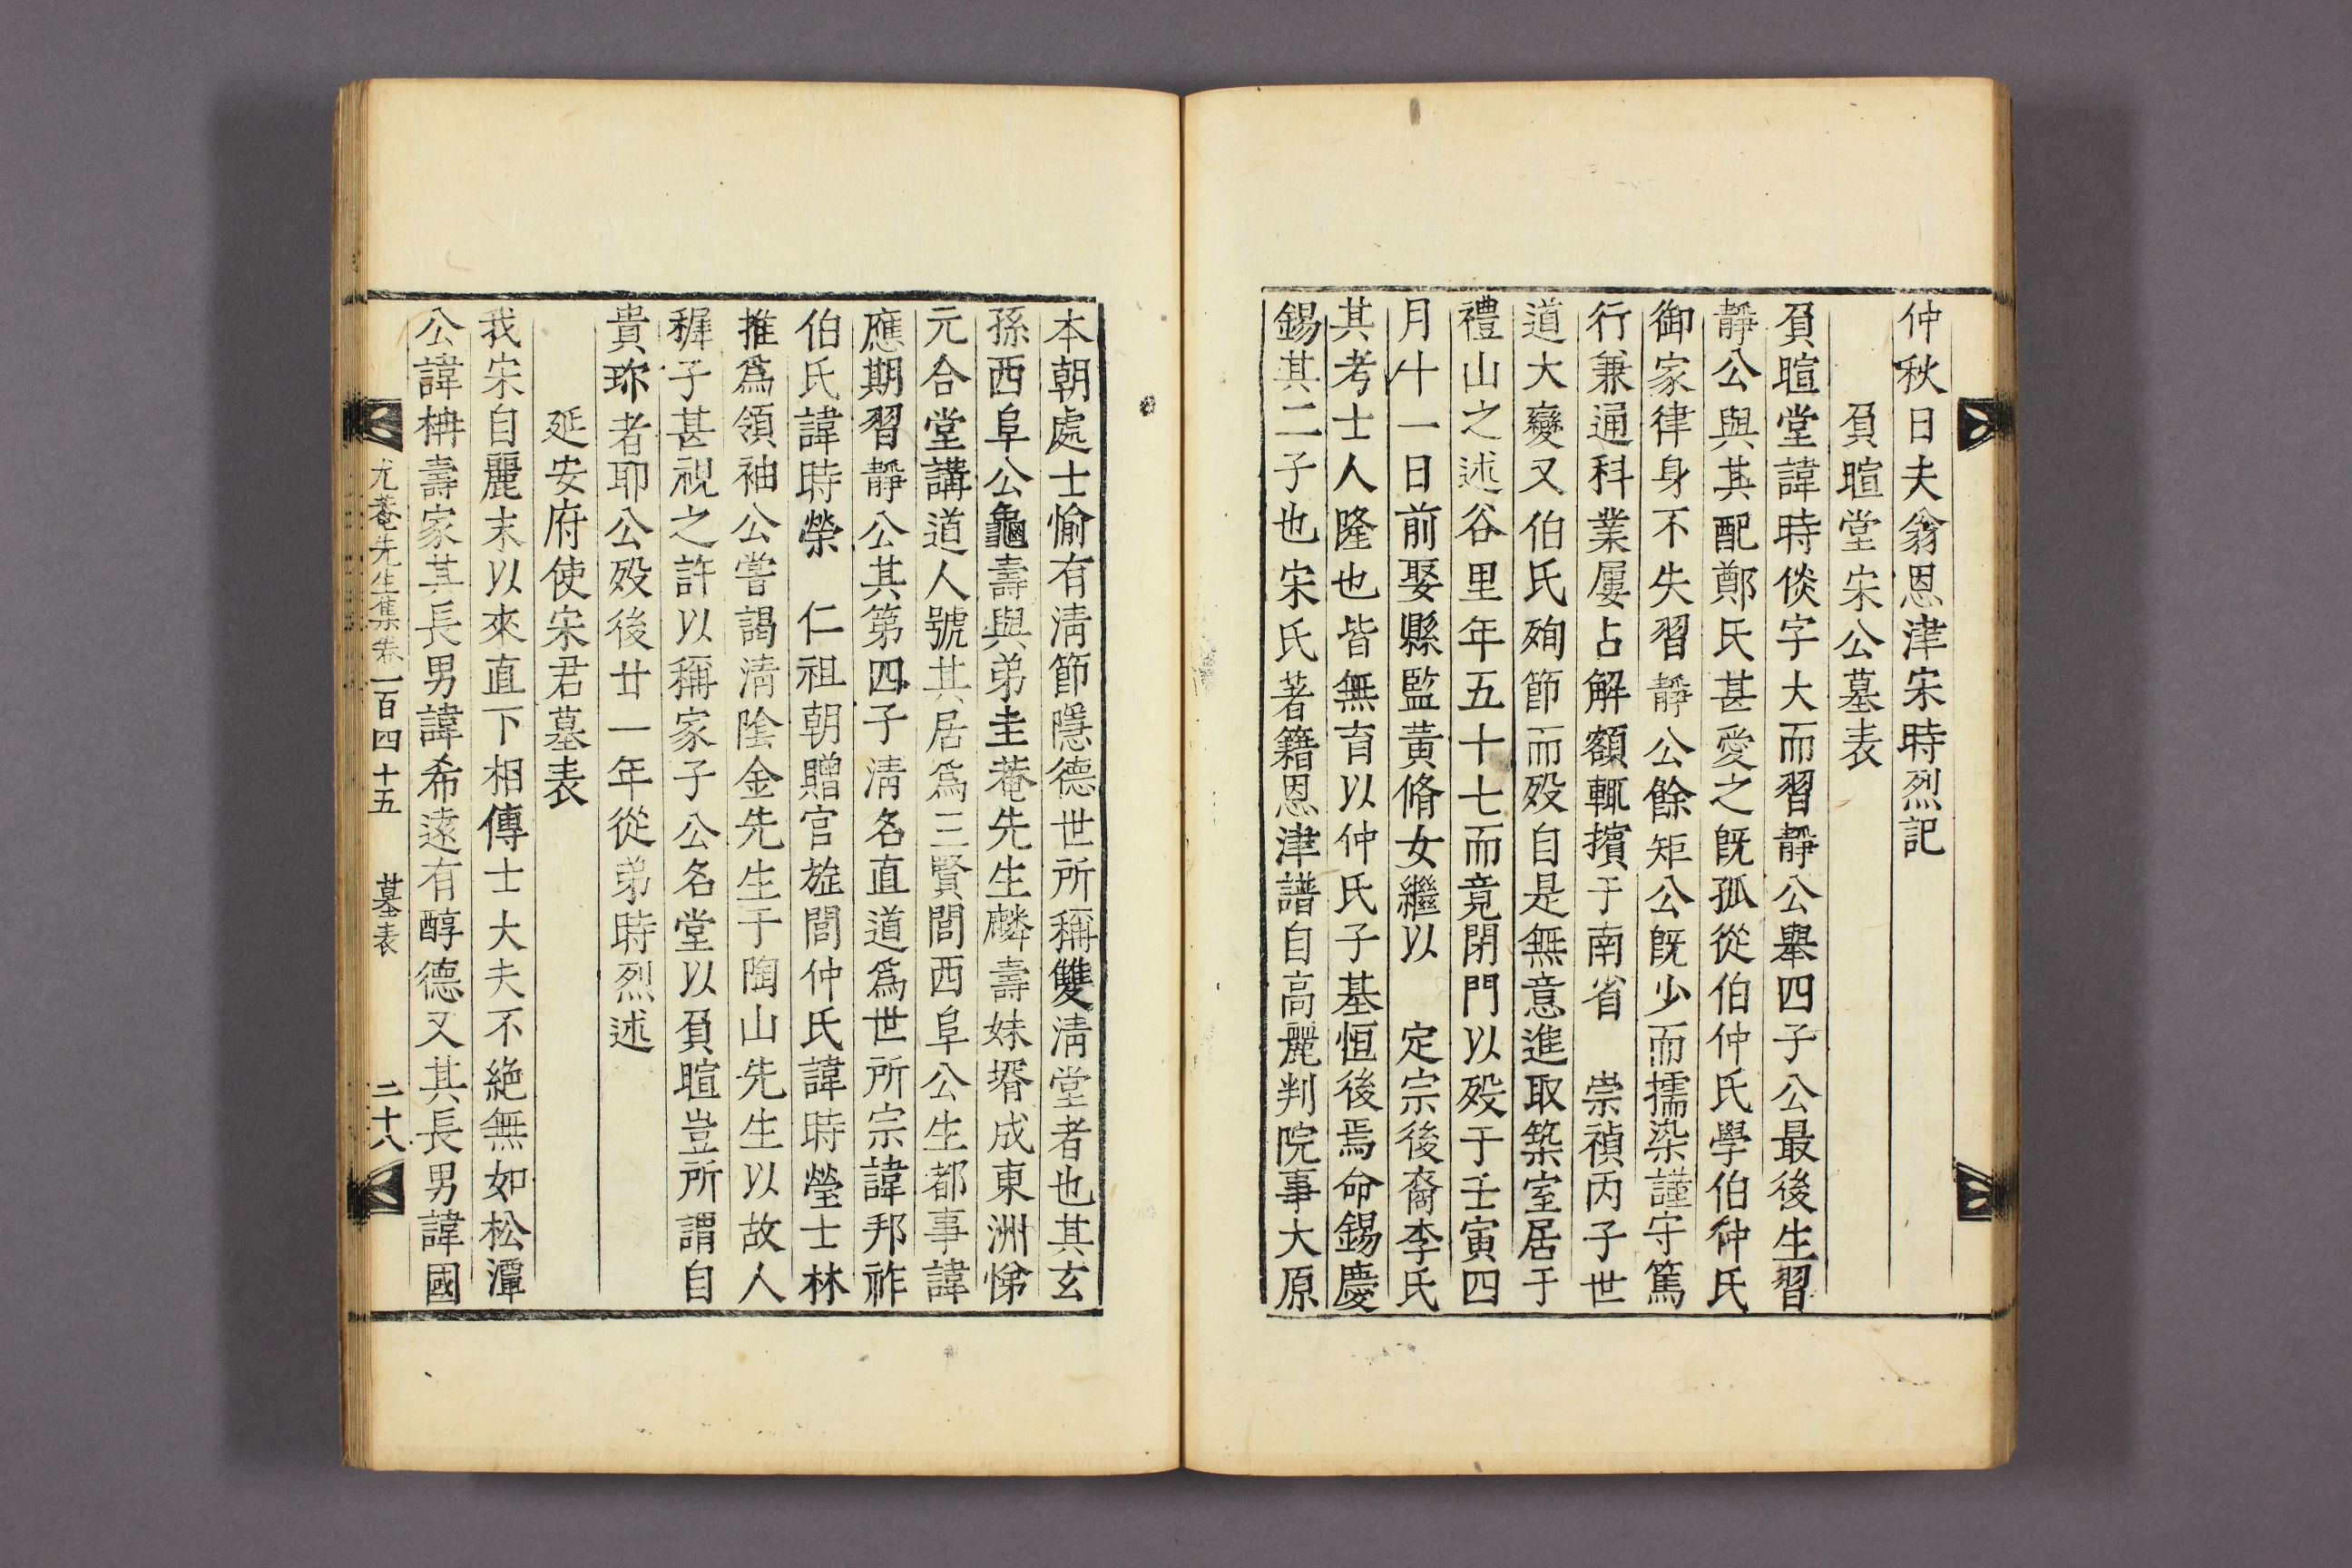 仲秋日夫翁恩津宋時烈記
負暄堂宋公墓表
負暄堂諱時倓字大而習靜公擧四子公最後生習
靜公與其配鄭氏甚愛之旣孤從伯仲氏學伯仲氏
御家律身不失習靜公餘矩公旣少而擩染謹守篤
行兼通科業屢占解額輒擯于南省　崇禎丙子世
道大變又伯氏殉節而歿自是無意進取築室居于
禮山之述谷里年五十七而竟閉門以歿于壬寅四
月十一日前娶縣監黃脩女繼以　定宗後裔李氏
其考士人隆也皆無育以仲氏子基恒後焉命錫慶
錫其二子也宋氏著籍恩津譜自高麗判院事大原
本朝處士愉有淸節隱德世所稱雙淸堂者也其玄
孫西阜公龜壽與弟圭菴先生麟壽妹壻成東洲悌
元合堂講道人號其居爲三賢閭西阜公生都事諱
應期習靜公其第四子淸名直道爲世所宗諱邦祚
伯氏諱時榮　仁祖朝贈官旌閭仲氏諱時瑩士林
推爲領袖公嘗謁淸陰金先生于陶山先生以故人
穉子甚視之許以稱家子公名堂以負暄豈所謂自
貴珎者耶公歿後廿一年從弟時烈述
延安府使宋君墓表
我宋自麗末以來直下相傳士大夫不絶無如松潭
公諱枏壽家其長男諱希遠有醇德又其長男諱國
尤菴先生集卷一百四十五　墓表　二十八